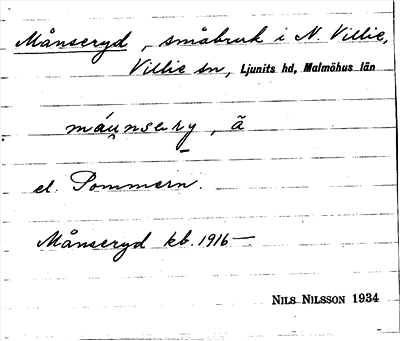 Månseryd, småbruk i N. Villie,
Villie sn, Ljunits hd, Malmöhus län
máu̯nsery, ã
el. Pommern.
Månseryd kb. 1916—
NILS NILSSON 1934